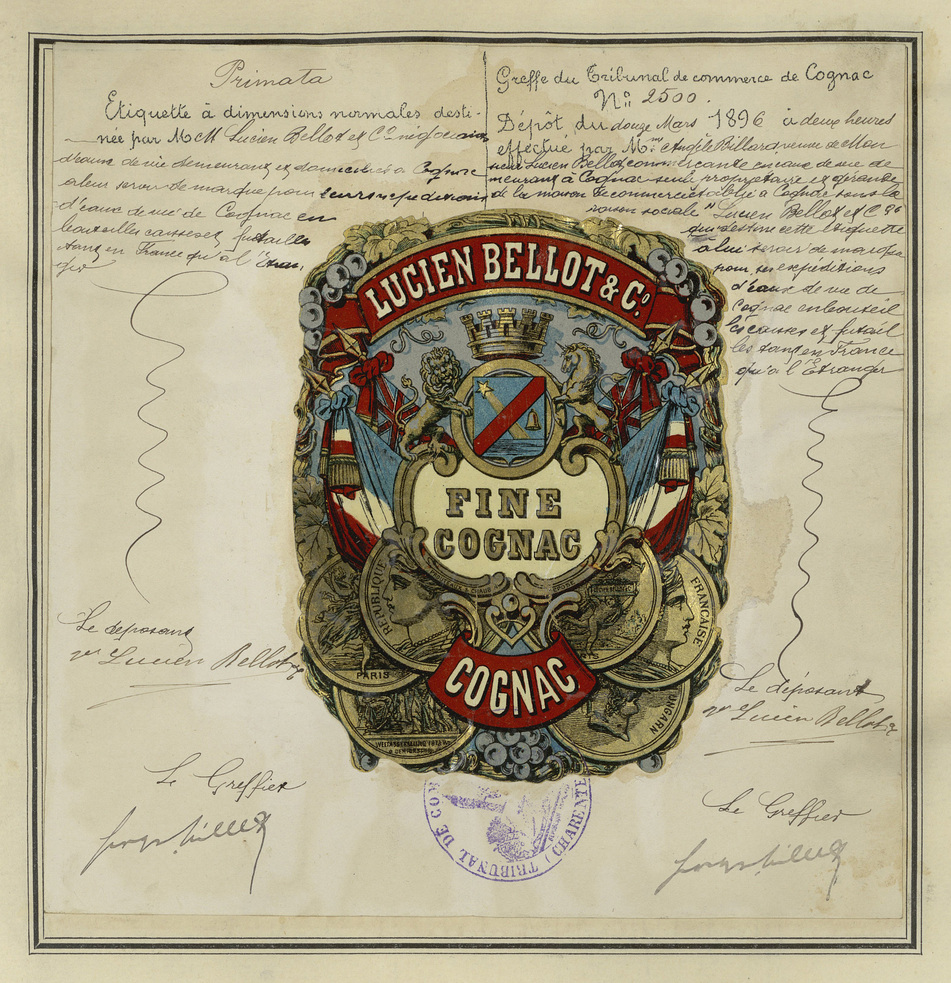 Primata
Etiquette à dimensions normales desti-
née par MM Lucien Bellot et Cie négociants
d'eaux de vie demeurant et domiciliés à Cognac
à leur servir de marque pour leurs expéditions
d'eaux de vie de Cognac en
bouteilles caisses et futailles
tant en France qu'à l'Etran-
ger
Le déposant
Lucien Bellot
Le Greffier
Greffe du Tribunal de commerce de Cognac
N° 2500.
Dépôt du douze Mars 1896 à deux heures
effectué par Mme Angèle Billard veuve de Mon
sieur Lucien Bellot commerçante en eaux de vie de
meurant à Cognac seule propriétaire et gérante
de la maison de commerce établie à Cognac sous la
raison sociale "Lucien Bellot et Cie"
qui destine cette étiquette
à lui servir de marque
pour ses expéditions
d'eaux de vie de
Cognac en bouteil
les caisses et futail
les tant en France
qu'à l'Etranger
Le déposant
Lucien Bellot
Le Greffier
LUCIEN BELLOT & Co.
FINE
COGNAC
RÉPUBLIQUE
FRANÇAISE
PARIS
COGNAC
UNGARN
TRIBUNAL DE CO
(CHARENTE